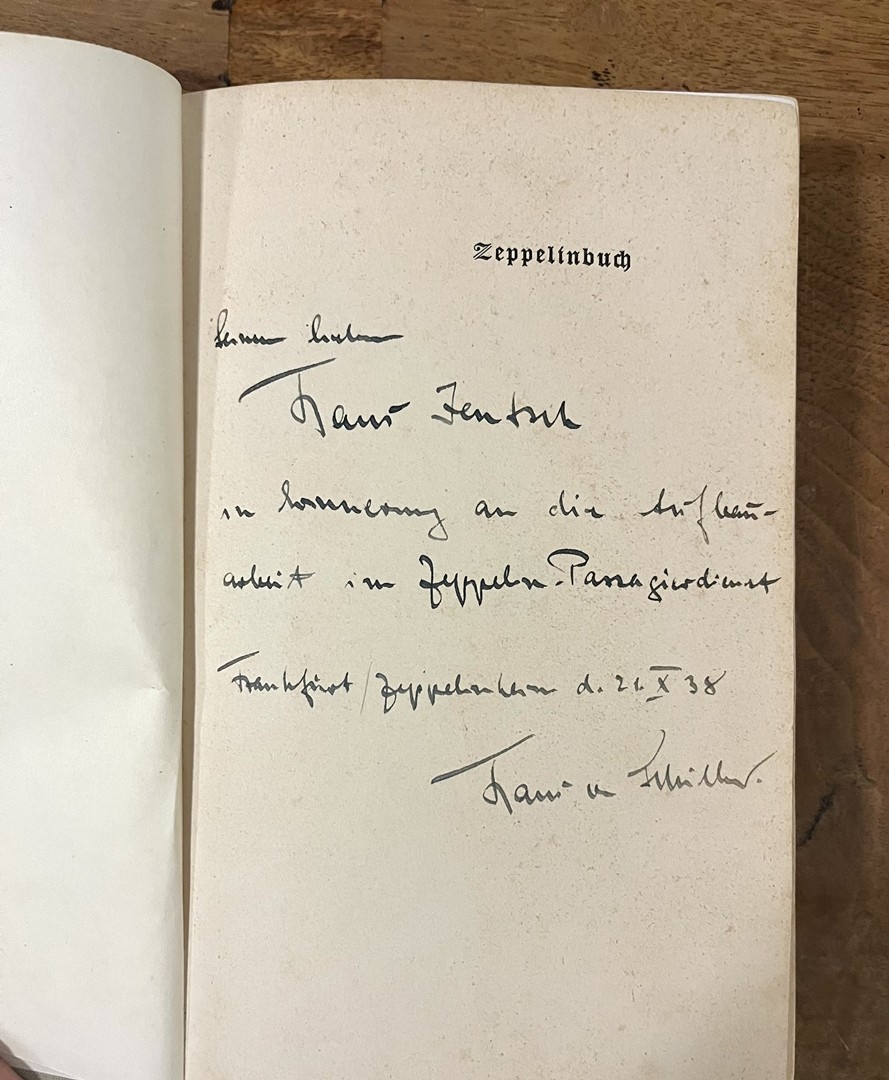 Zeppelinbuch
Seinem lieben
Hans Jentsch
in Erinnerung an die Aufbau-
arbeit im Zeppelin-Passagierdienst
Frankfurt/Zeppelinheim d. 21. X 38
Hans v. Schiller.